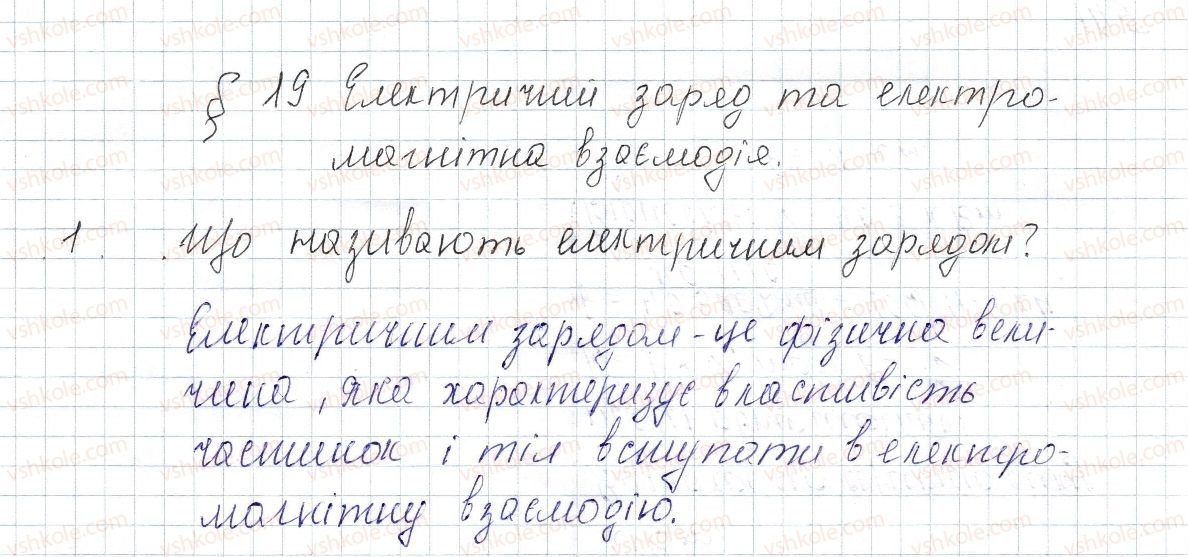 § 19 Електричний заряд та електро-
магнітна взаємодія.
1. Що називають електричним зарядом?
Електричним зарядом - це фізична вели-
чина, яка характеризує властивість
частинок і тіл вступати в електро-
магнітну взаємодію.